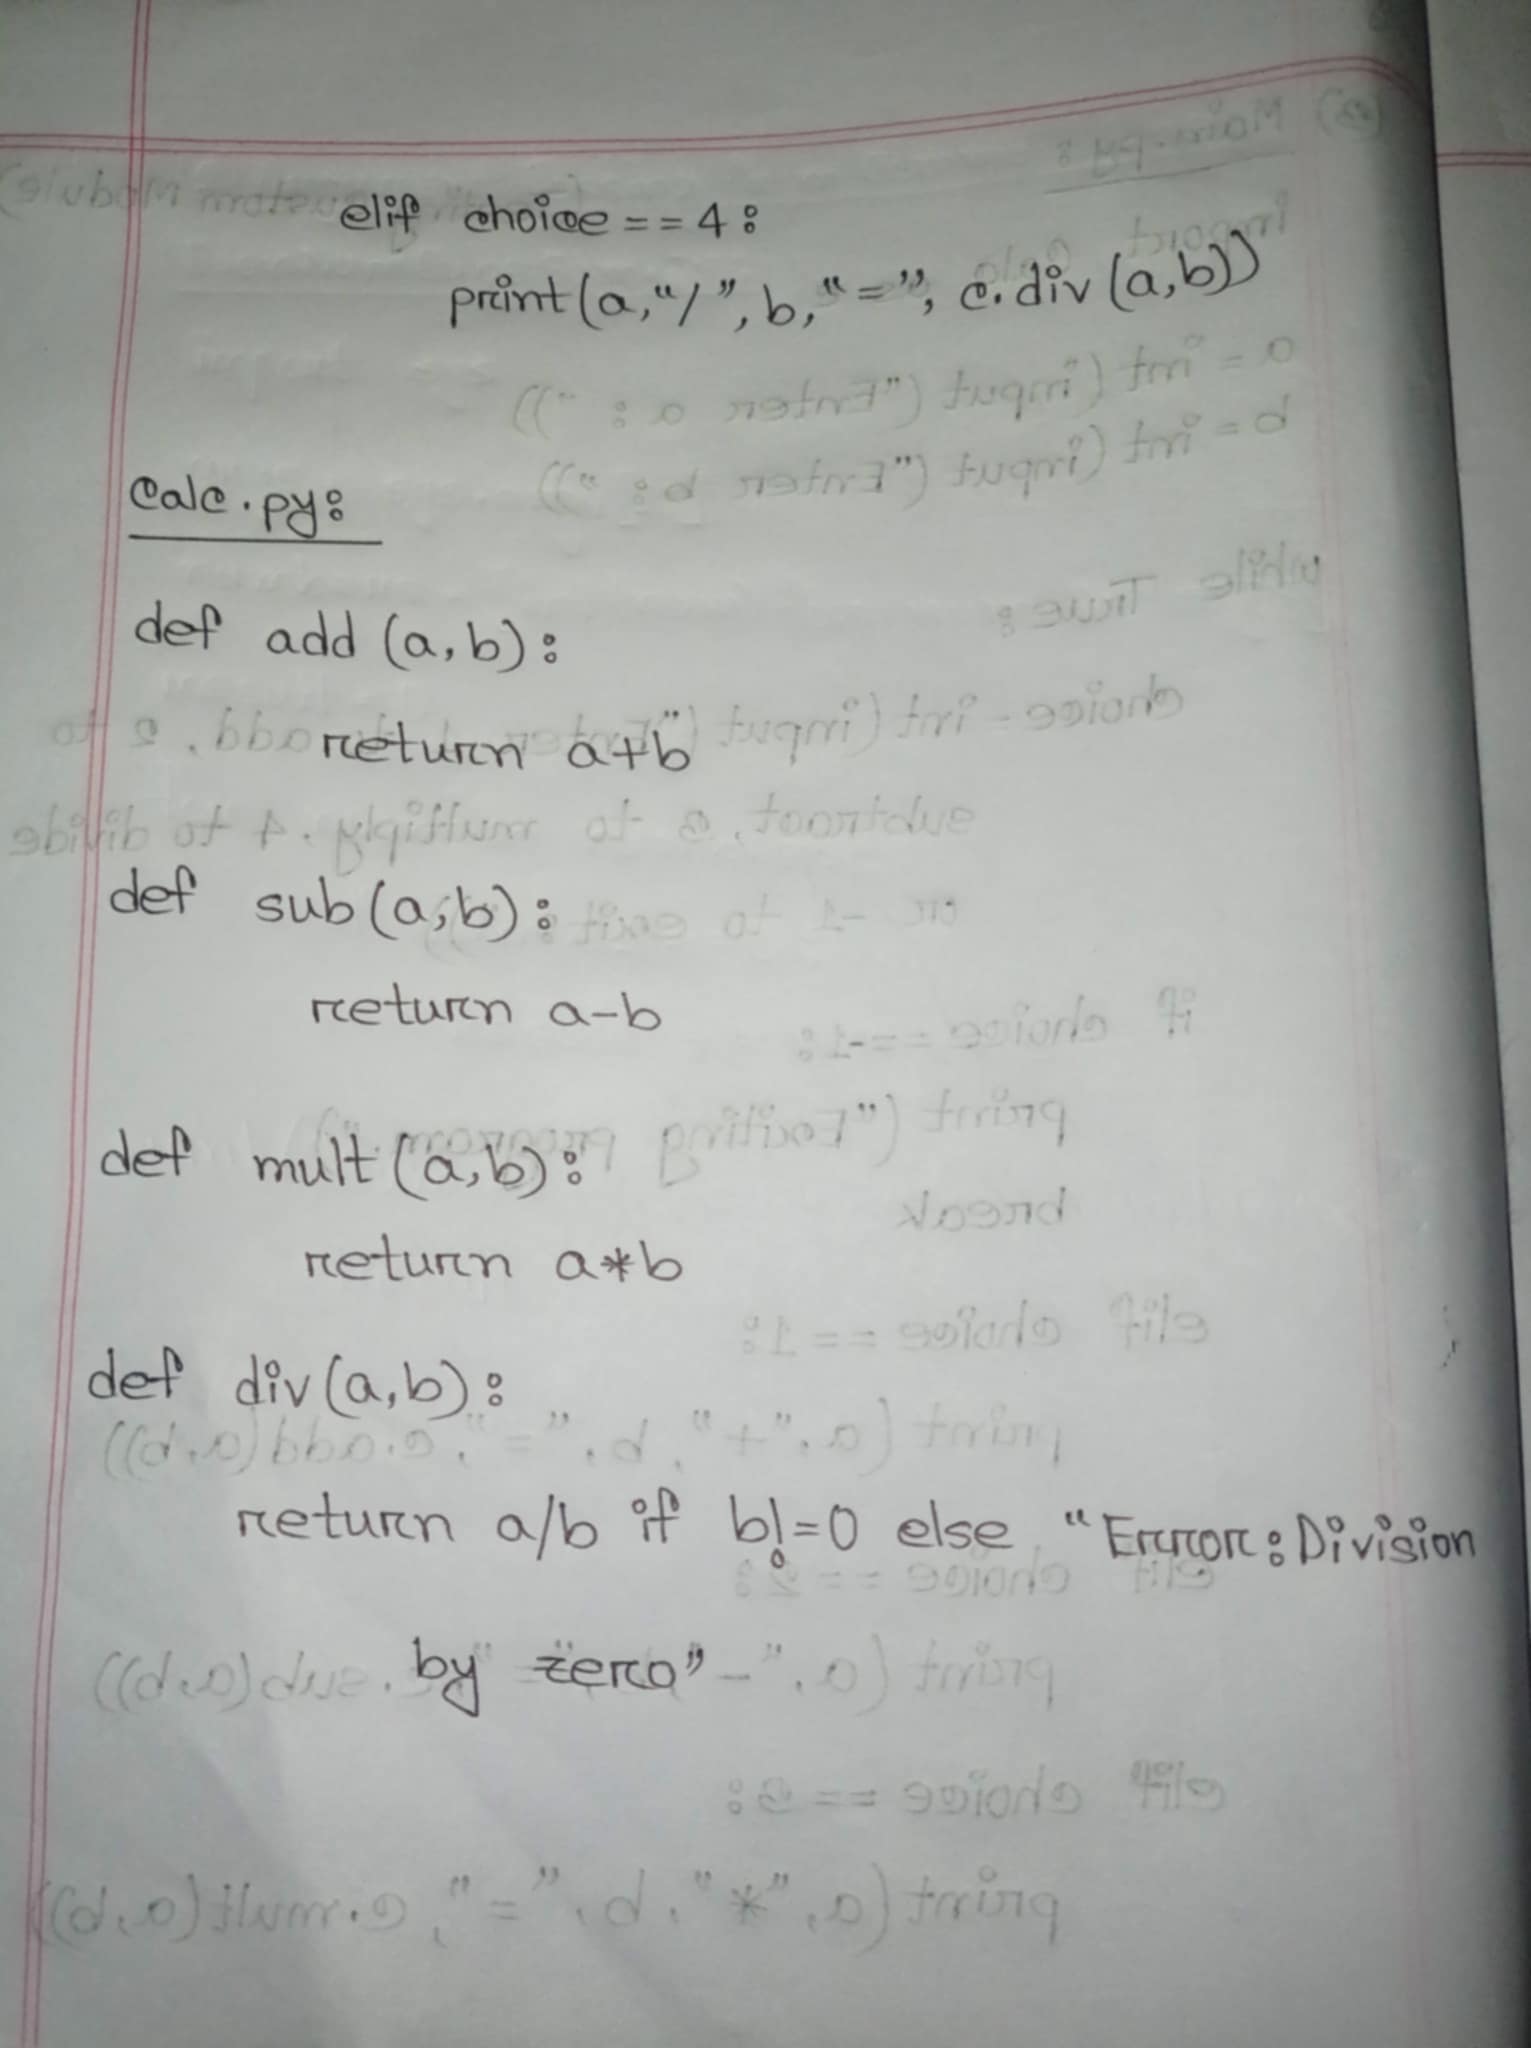 elif choice == 4:
print(a,"/", b, "=", c.div(a,b))
calc.py:
def add (a,b):
return a+b
def sub(a,b):
return a-b
def mult(a,b):
return a*b
def div(a,b):
return a/b if b!=0 else "Error: Division
by zero"